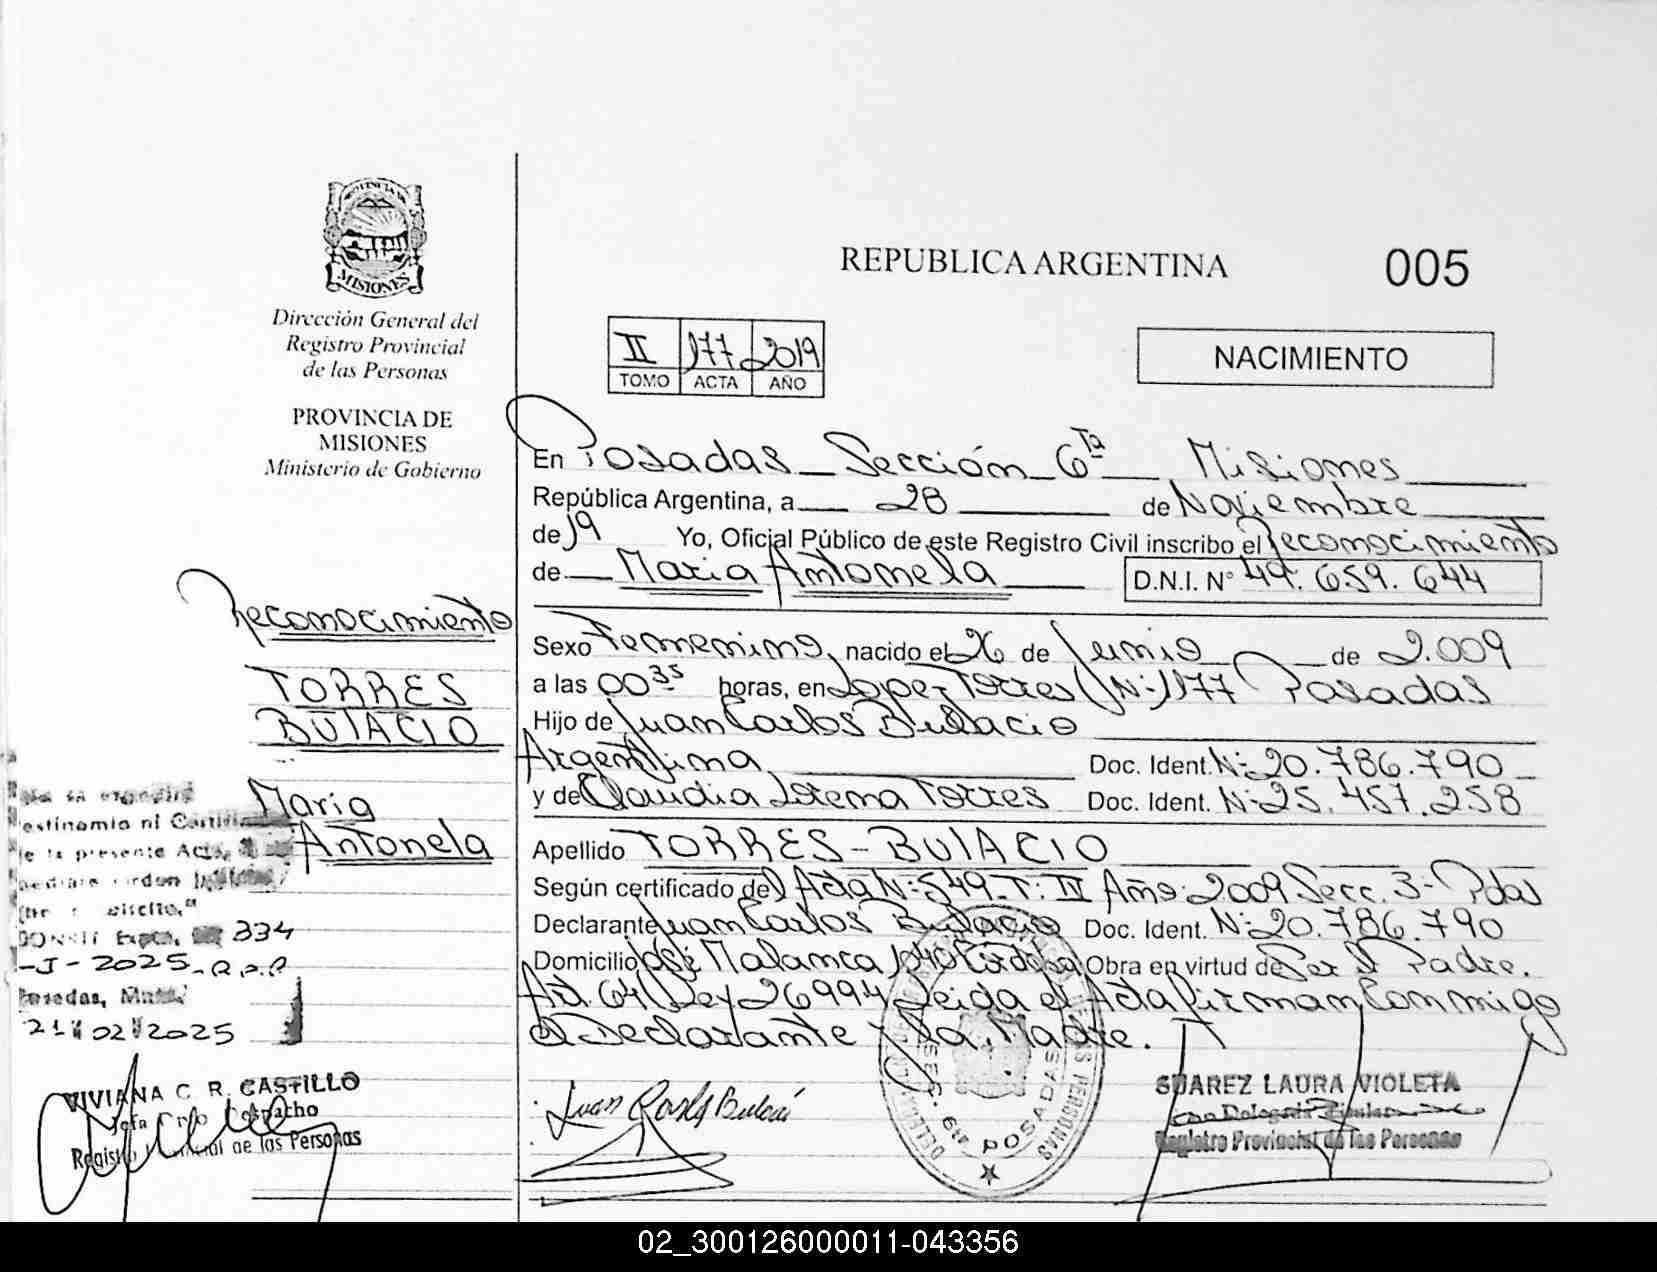 PROVINCIA DE
MISIONES
Dirección General del
Registro Provincial
de las Personas
PROVINCIA DE
MISIONES
Ministerio de Gobierno
REPUBLICA ARGENTINA
005
II 177 2019
TOMO ACTA AÑO
NACIMIENTO
En Posadas Sección 6ta Misiones
República Argentina, a 28 de Noviembre
de 19 Yo, Oficial Público de este Registro Civil inscribo el reconocimiento
de Maria Antonela D.N.I. N° 49.659.644
Sexo Femenino, nacido el 26 de Junio de 2.009
a las 00 35 horas, en Lopez Torres N: 1177 Posadas
Hijo de Juan Carlos Bulacio
Argentina Doc. Ident. N: 20.786.790
y de Claudia Lorena Torres Doc. Ident. N: 25.457.258
Apellido TORRES - BULACIO
Según certificado del Acta N: 549 T: IV Año: 2009 Secc. 3: Pdas
Declarante Juan Carlos Bulacio Doc. Ident. N: 20.786.790
Domicilio José Malanca 1040 Córdoba Obra en virtud de Ser el Padre.
Art. 64 Ley 26994 Leida el Acta firman conmigo
el Declarante y la Madre.
Reconocimiento
TORRES
BULACIO
Maria
Antonela
de la presente Acta,
334
-J-2025
Posadas,
21 02 2025
VIVIANA C. R. CASTILLO
de las Personas
Juan Carlos Bulacio
POSADAS
SUAREZ LAURA VIOLETA
Registro Provincial de las Personas
02_300126000011-043356